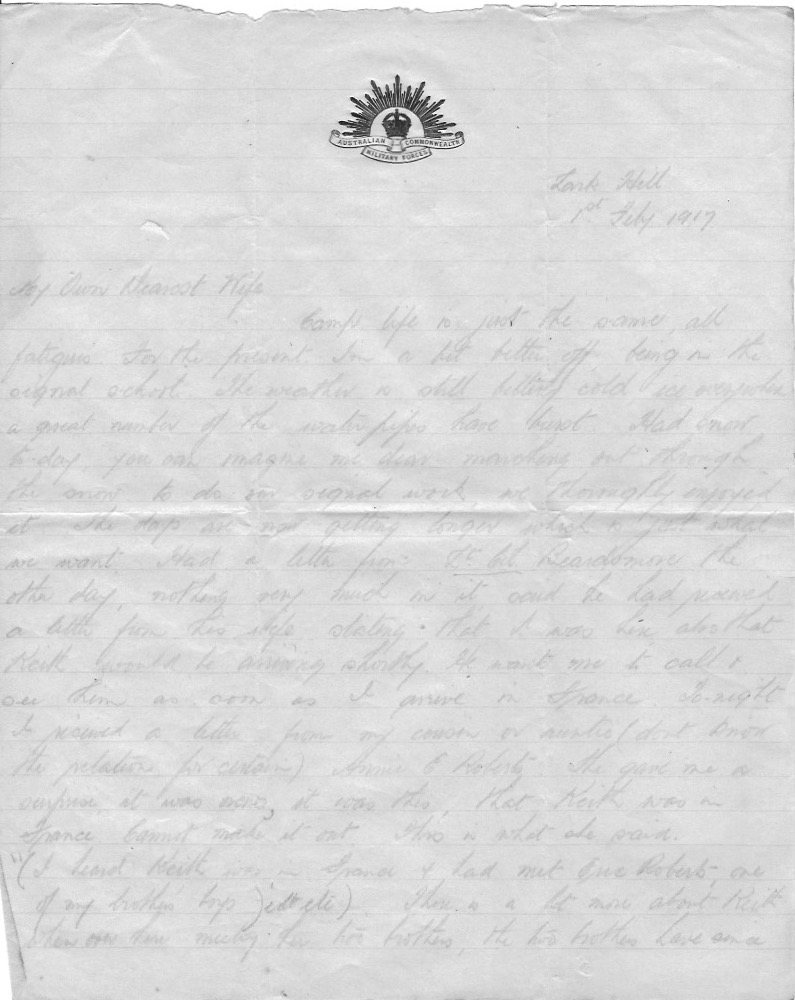 AUSTRALIAN COMMONWEALTH
MILITARY FORCES
Lark Hill
1st Feby 1917
My Own Dearest Wife
Camp life is just the same, all
fatigues for the present. Im a bit better off being in the
signal school. The weather is still bitterly cold ice everywhere
a great number of the water pipes have burst. Had snow
to-day you can imagine me dear marching out through
the snow to do our signal work, we thoroughly enjoyed
it. The days are now getting longer which is just what
we want. Had a letter from Lt Col Beardsmore the
other day, nothing very much in it, said he had received
a letter from his wife stating that I was here also that
Keith would be arriving shortly. He want me to call &
see them as soon as I arrive in France. To-night
I received a letter from my cousin or auntie (dont know
the relation for certain) Annie E Roberts. She gave me a
surprise it was news, it was this, that Keith was in
France. Cannot make it out. This is what she said.
"(I heard Keith was in France & had met Gus Roberts, one
of my brothers boys) etc etc). There is a lot more about Keith
meeting her two brothers, the two brothers have since